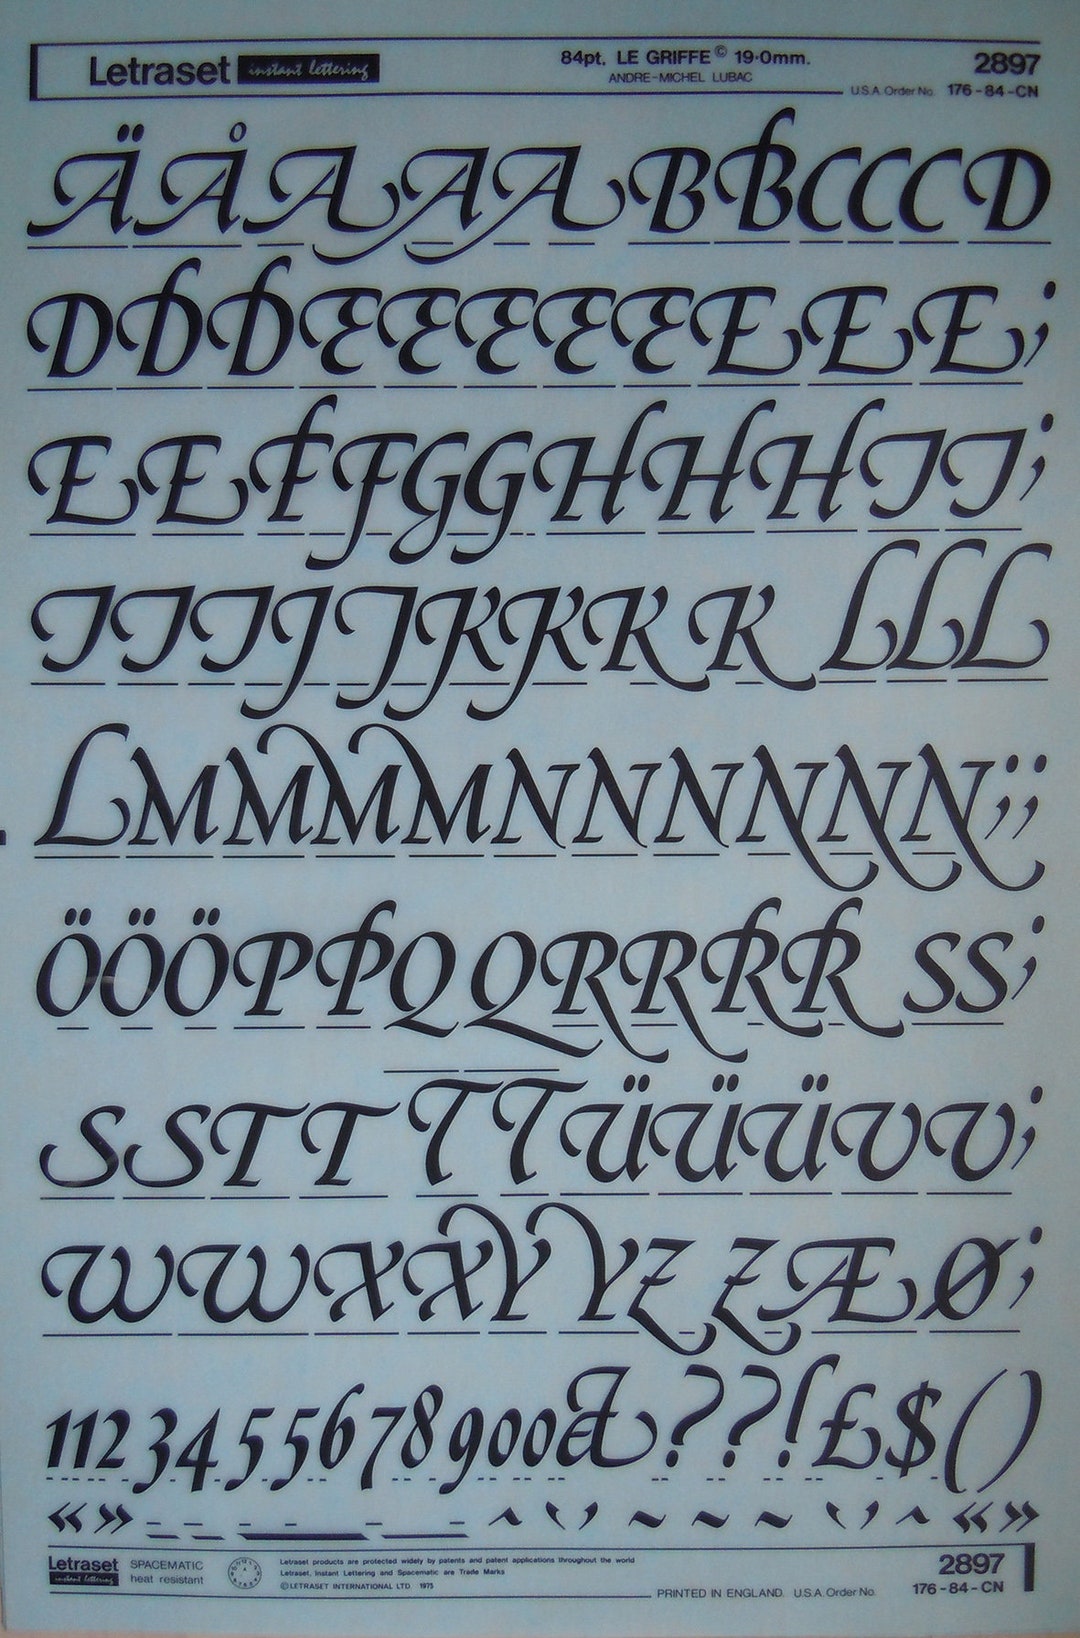 Letraset instant lettering 84pt. LE GRIFFE© 19·0mm. 2897
ANDRE-MICHEL LUBAC
U.S.A. Order No. 176-84-CN
ÄÅAAABBCCCD
DDDEEEEEEEE;
EEFFGGHHHII;
IIIJJKKKKLLL
LMMMMNNNNNN;;
ÖÖÖPPQQRRRRSS;
SSTTTTÜÜÜVV;
WWXXYYZZÆØ;
112345567890 0&??!£$()
«» «»
Letraset instant lettering SPACEMATIC heat resistant
Letraset products are protected widely by patents and patent applications throughout the world
Letraset, Instant Lettering and Spacematic are Trade Marks
©LETRASET INTERNATIONAL LTD. 1973
PRINTED IN ENGLAND. U.S.A. Order No. 176-84-CN
2897